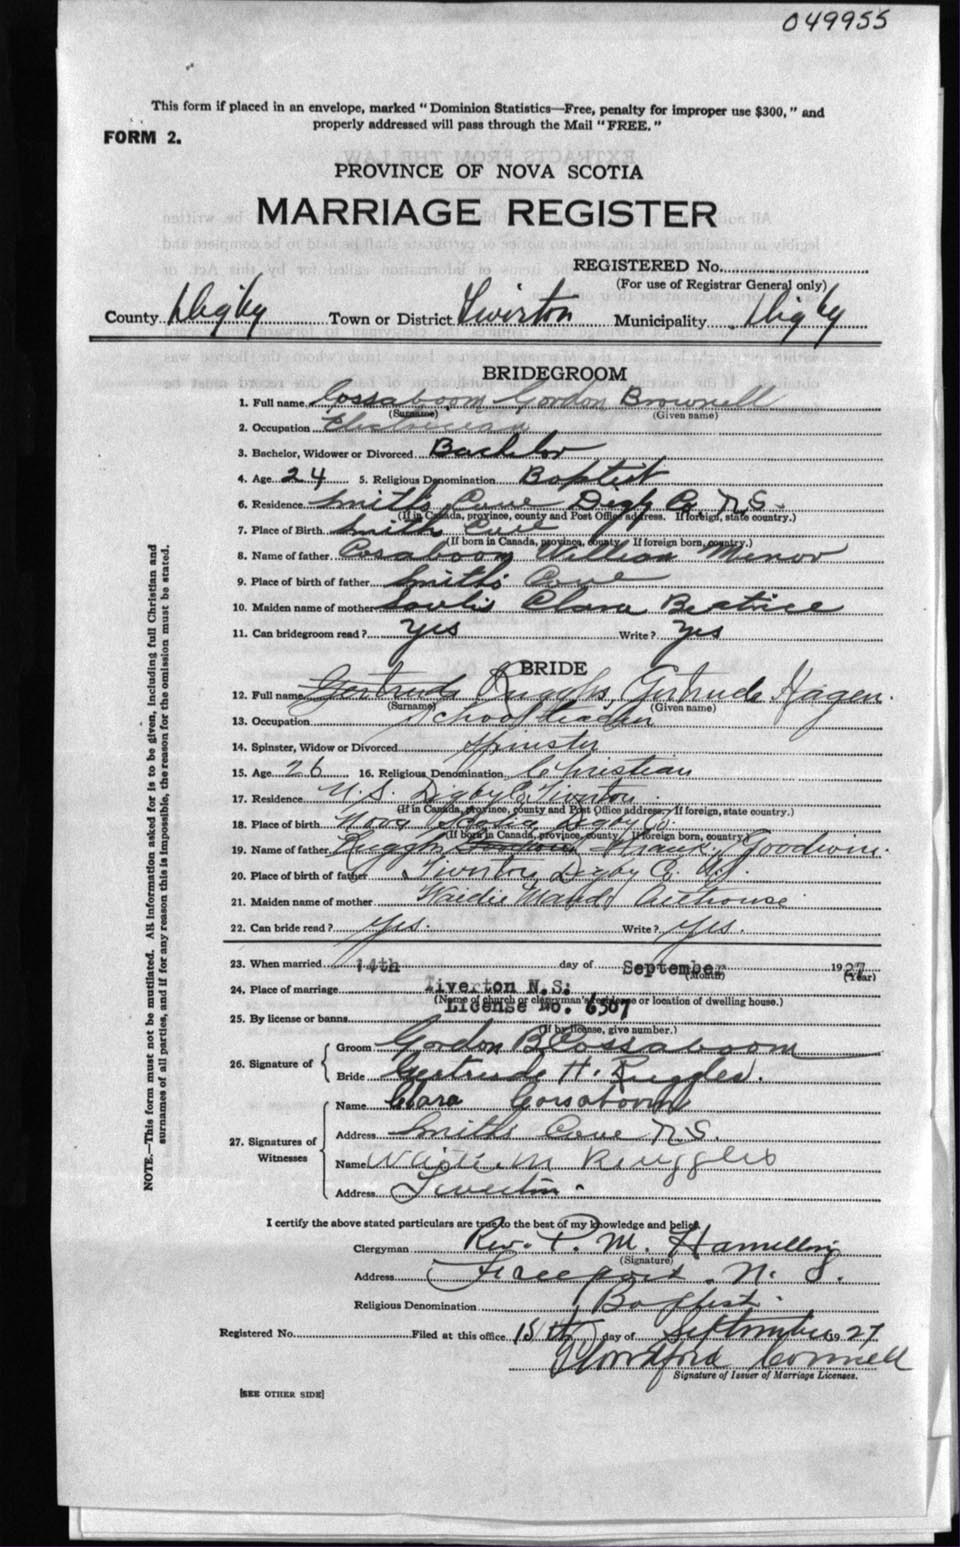 049955
This form if placed in an envelope, marked "Dominion Statistics—Free, penalty for improper use $300," and
properly addressed will pass through the Mail "FREE."
FORM 2.
PROVINCE OF NOVA SCOTIA
MARRIAGE REGISTER
REGISTERED No.
(For use of Registrar General only)
County Digby Town or District Tiverton Municipality Digby
BRIDEGROOM
1. Full name Cossaboom Gordon Brownell
(Surname) (Given name)
2. Occupation Electrician
3. Bachelor, Widower or Divorced Bachelor
4. Age 24 5. Religious Denomination Baptist
6. Residence Smith's Cove Digby Co N.S.
(If in Canada, province, county and Post Office address. If foreign, state country.)
7. Place of Birth Smith's Cove
(If born in Canada, province, county. If foreign born, country.)
8. Name of father Cosaboom William Minor
9. Place of birth of father Smith's Cove
10. Maiden name of mother Clara Beatrice
11. Can bridegroom read? yes Write? yes
BRIDE
12. Full name Gertrude Ruggles, Gertrude Hagen.
(Surname) (Given name)
13. Occupation School teacher
14. Spinster, Widow or Divorced Spinster
15. Age 26 16. Religious Denomination Christian
17. Residence N.S. Digby Co. Tiverton.
(If in Canada, province, county and Post Office address. If foreign, state country.)
18. Place of birth Nova Scotia Digby Co.
(If born in Canada, province, county. If foreign born, country.)
19. Name of father Ruggles Frank Goodwin.
20. Place of birth of father Tiverton Digby Co. N.S.
21. Maiden name of mother Maud Outhouse
22. Can bride read? yes. Write? yes.
23. When married 14th day of September 1927
(Month) (Year)
24. Place of marriage Tiverton N.S.
(Name of church or clergyman's residence or location of dwelling house.)
25. By license or banns License No. 6507
(If by license, give number.)
26. Signature of
Groom Gordon B Cossaboom
Bride Gertrude H. Ruggles.
27. Signatures of Witnesses
Name Clara Corsaboom
Address Smiths Cove N.S.
Name M Ruggles
Address Tiverton.
I certify the above stated particulars are true to the best of my knowledge and belief.
Clergyman Rev. P. M.
(Signature)
Address Freeport. N. S.
Religious Denomination Baptist.
Registered No. Filed at this office 15th day of September 1927
Connell
Signature of Issuer of Marriage Licenses.
[SEE OTHER SIDE]
NOTE.—This form must not be mutilated. All information asked for is to be given, including full Christian and
surnames of all parties, and if for any reason this is impossible, the reason for the omission must be stated.